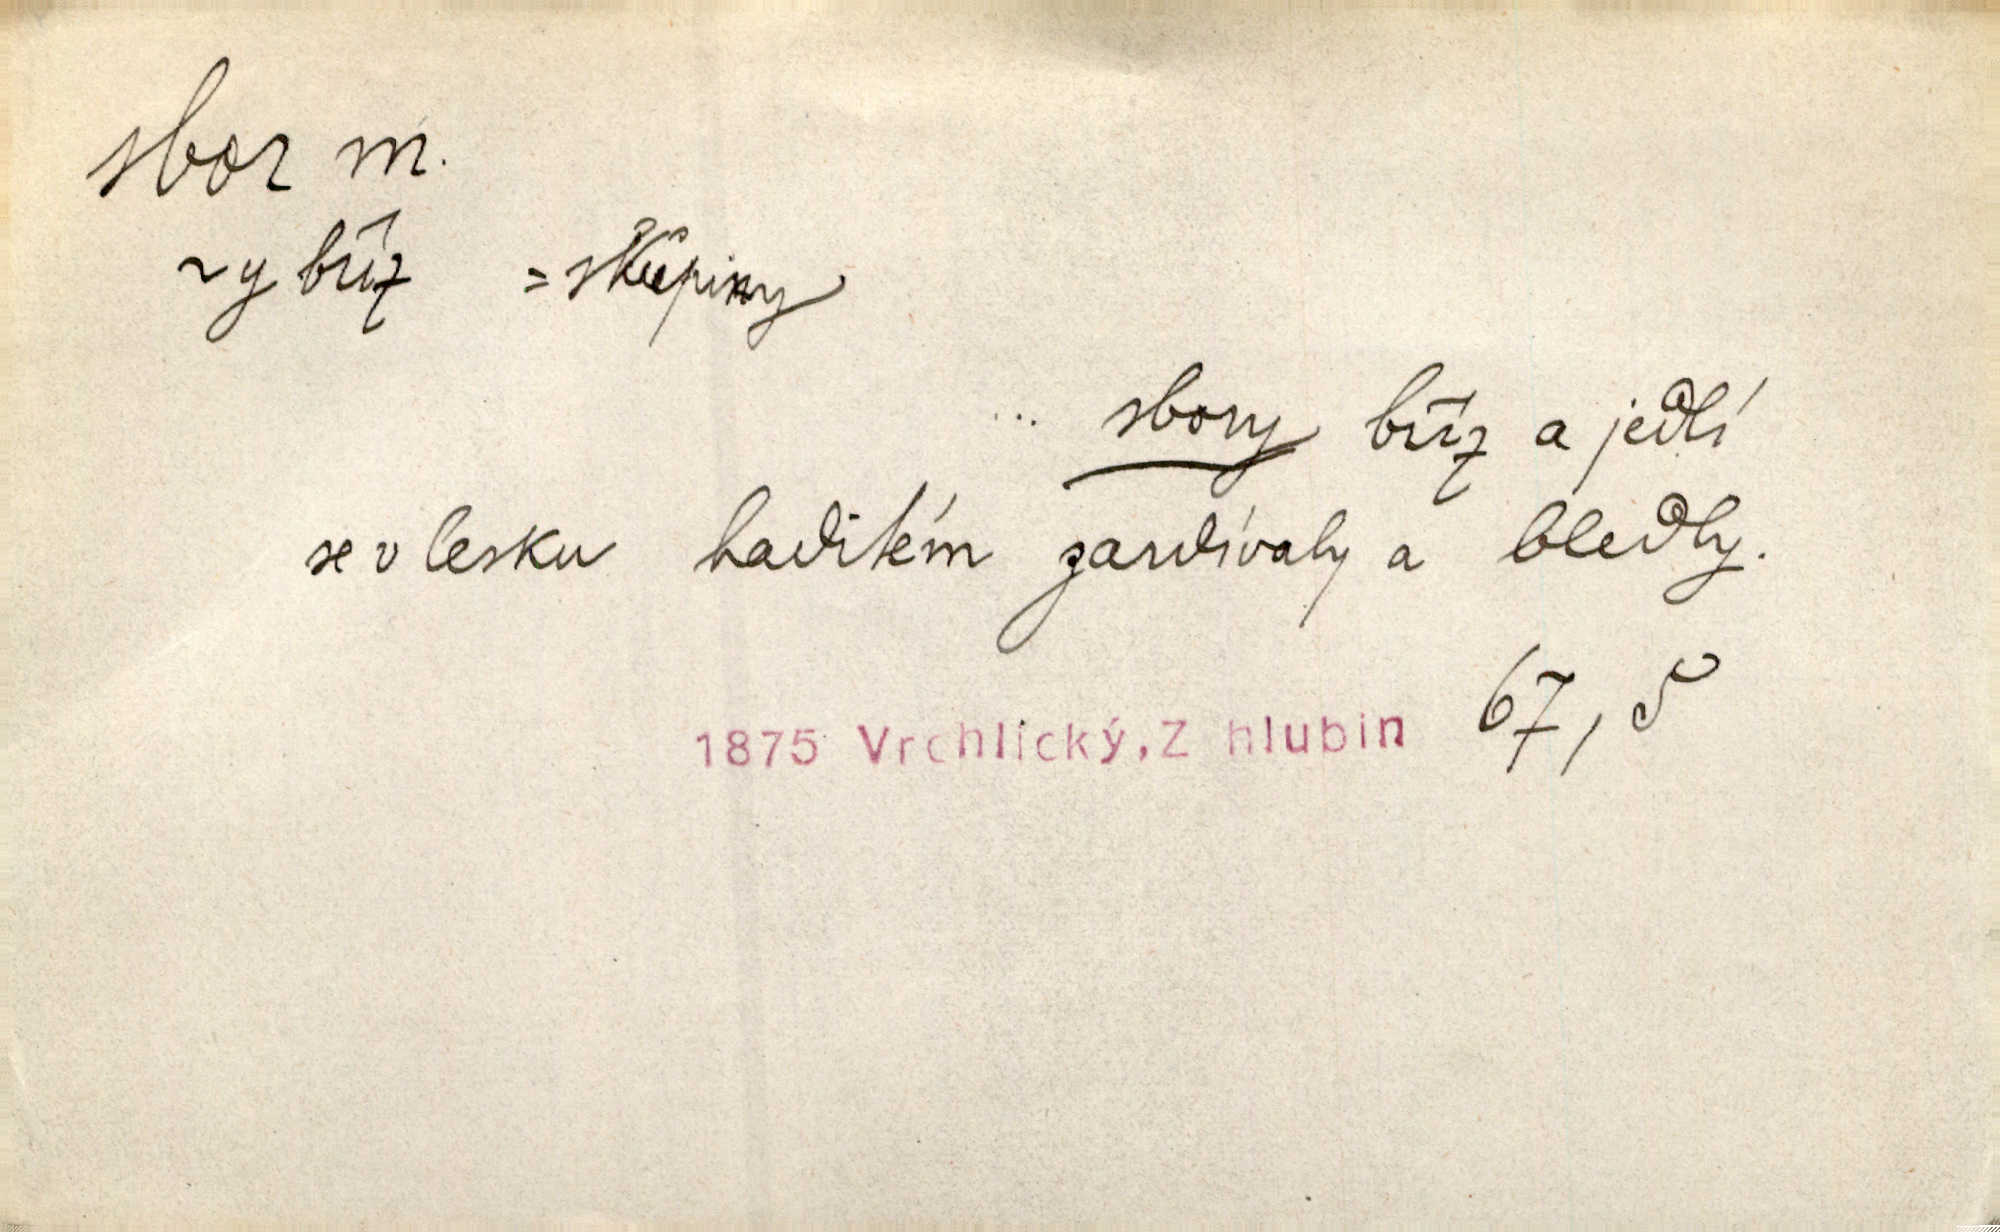 sbor m.
~y bříz = skupiny
.. sbory bříz a jedlí
se v lesku haditém zardívaly a bledly.
67,5
1875 Vrchlický, Z hlubin